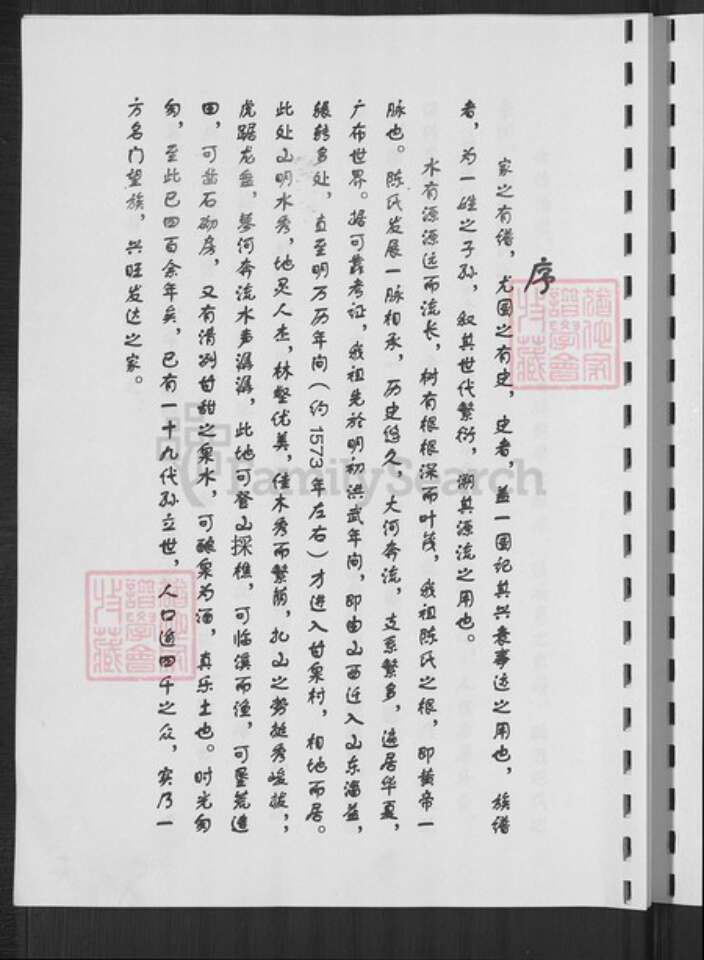 序
家之有谱，尤国之有史，史者，盖一国记其兴衰事迹之用也，族谱
者，为一姓之子孙，叙其世代繁衍，溯其源流之用也。
水有源源远而流长，树有根根深而叶茂，我祖陈氏之根，即黄帝一
脉也。陈氏发展一脉相承，历史悠久，大河奔流，支系繁多，遍居华夏，
广布世界。据可靠考证，我祖先於明初洪武年间，即由山西迁入山东淄益，
辗转多处，直至明万历年间（约1573年左右）才进入甘泉村，相地而居。
此处山明水秀，地灵人杰，林壑优美，佳木秀而繁荫，扎山之势挺秀峻拔，；
虎踞龙盘，孝河奔流水声潺潺，此地可登山探樵，可临溪而渔，可垦荒造
田，可凿石砌房，又有清冽甘甜之泉水，可酿泉为酒，真乐土也。时光匆
匆，至此已四百余年矣，已有一十九代孙立世，人口逾四千之众，实乃一
方名门望族，兴旺发达之家。
谱學會
收藏
FamilySearch